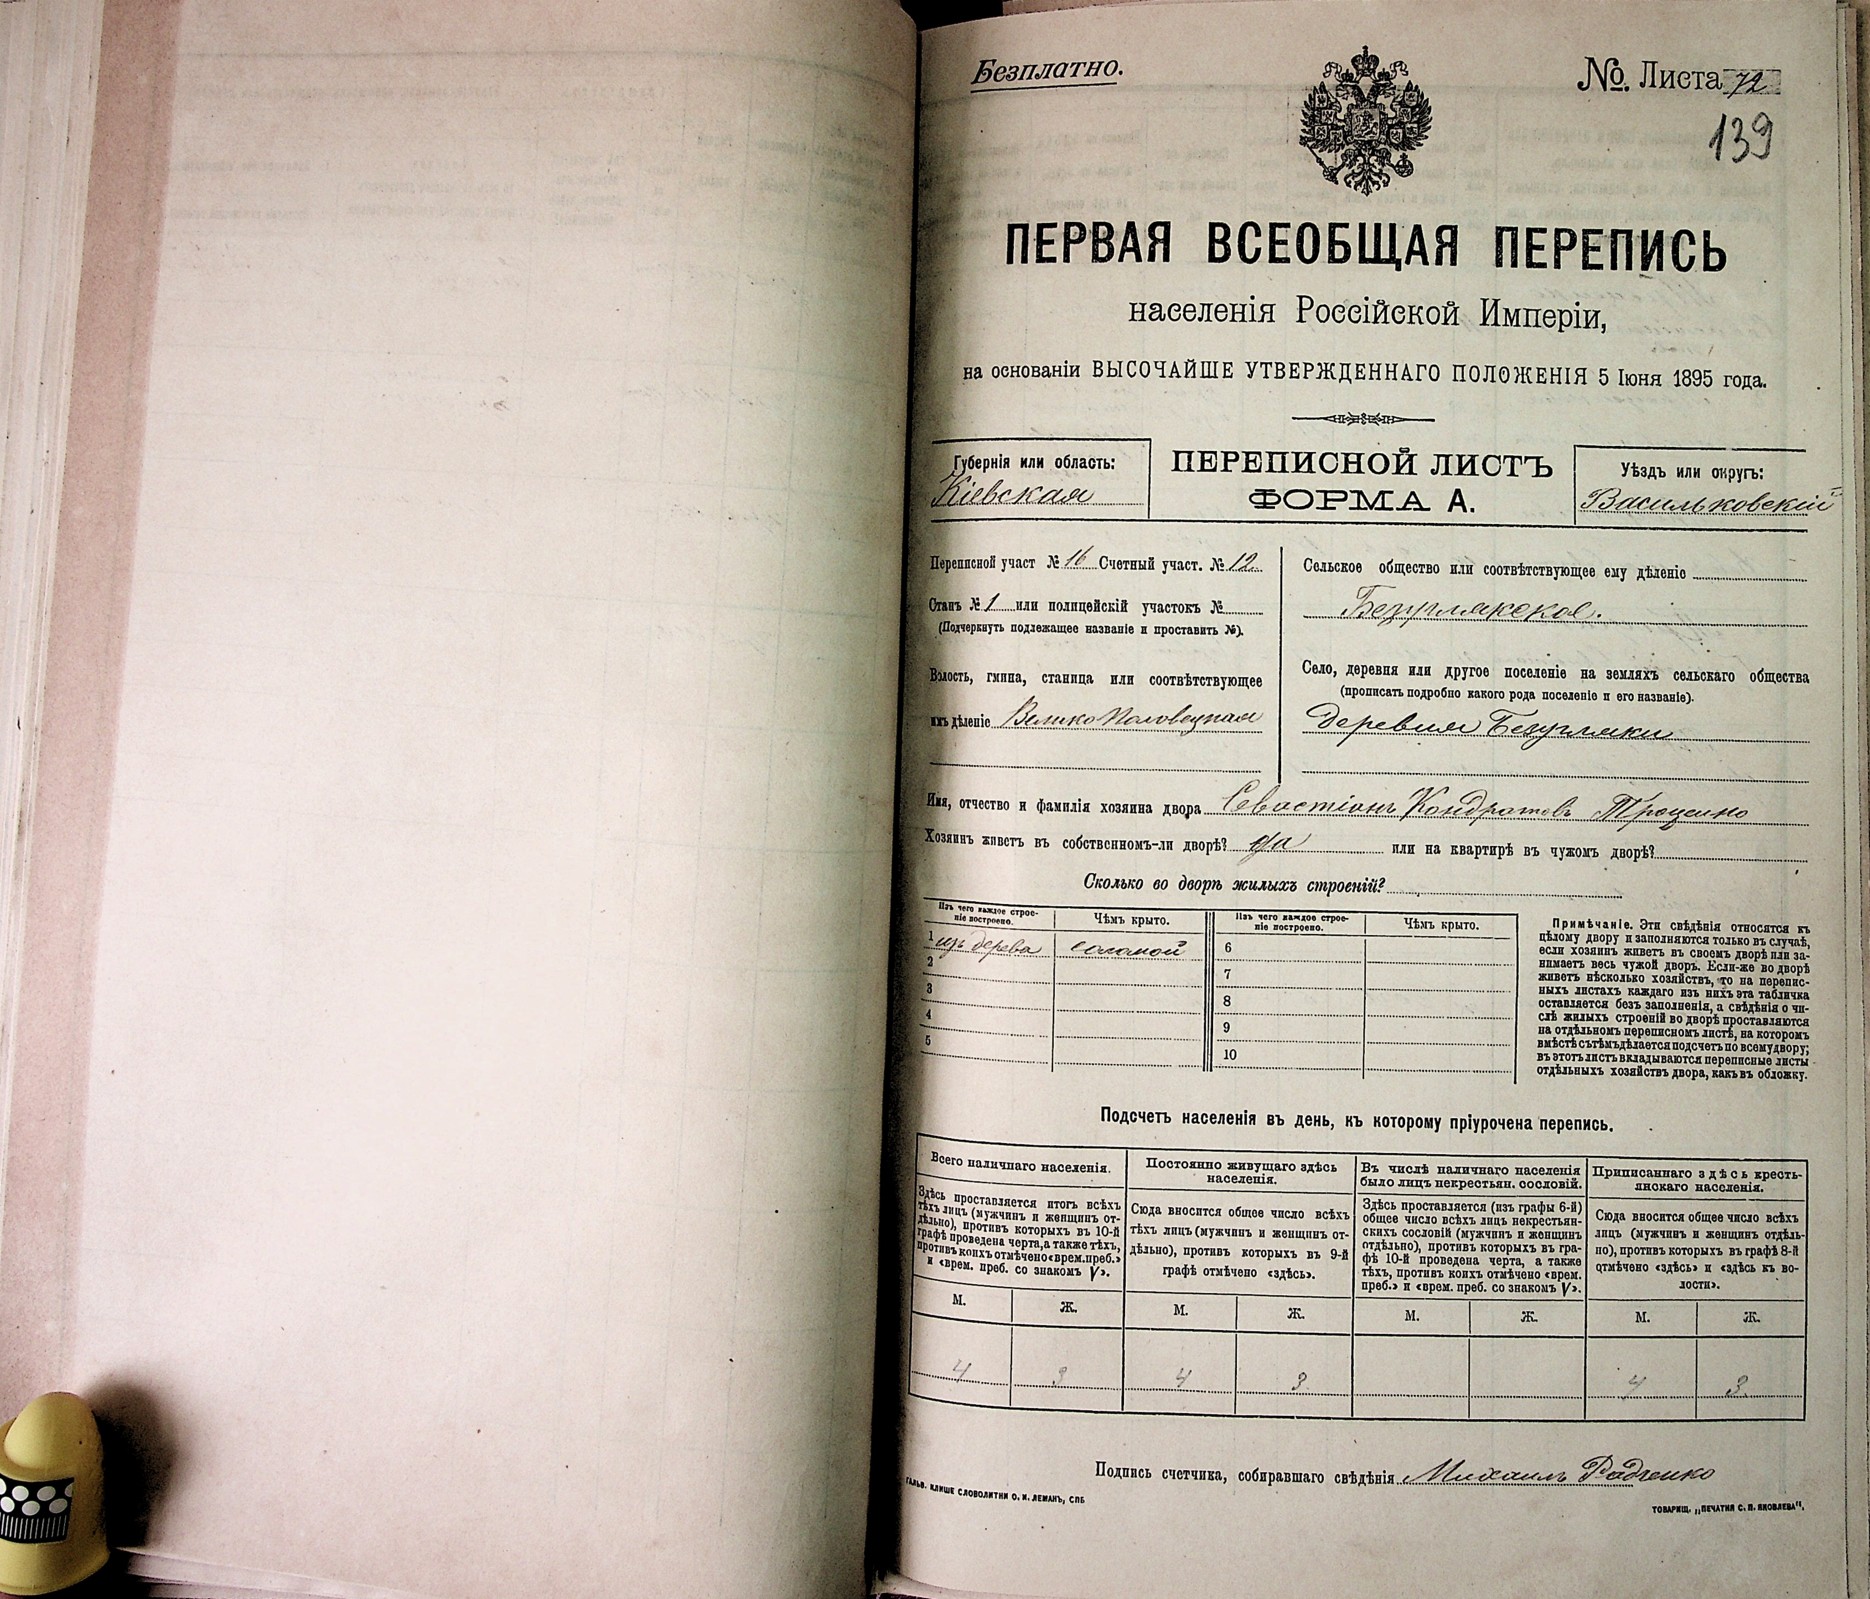 Безплатно.
№ Листа 72
139
ПЕРВАЯ ВСЕОБЩАЯ ПЕРЕПИСЬ
населенія Россійской Имперіи,
на основаніи ВЫСОЧАЙШЕ УТВЕРЖДЕННАГО ПОЛОЖЕНІЯ 5 Іюня 1895 года.
Губернія или область:
Кіевская
ПЕРЕПИСНОЙ ЛИСТЪ
ФОРМА А.
Уѣздъ или округъ:
Васильковскій
Переписной участ № 16 Счетный участ. № 12
Станъ № 1 или полицейскій участокъ №
(Подчеркнуть подлежащее названіе и проставить №).
Волость, гмина, станица или соотвѣтствующее
имъ дѣленіе Велико Половецкая
Сельское общество или соотвѣтствующее ему дѣленіе
Безуглякское.
Село, деревня или другое поселеніе на земляхъ сельскаго общества
(прописать подробно какого рода поселеніе и его названіе).
деревня Безугляки
Имя, отчество и фамилія хозяина двора Севастіянъ Кондратовъ Троценко
Хозяинъ живетъ въ собственномъ-ли дворѣ? да или на квартирѣ въ чужомъ дворѣ?
Сколько во дворѣ жилыхъ строеній?
Изъ чего каждое строе-
ніе построено.
Чѣмъ крыто.
Изъ чего каждое строе-
ніе построено.
Чѣмъ крыто.
1 изъ дерева соломой 6
2 7
3 8
4 9
5 10
Примѣчаніе. Эти свѣдѣнія относятся къ
цѣлому двору и заполняются только въ случаѣ,
если хозяинъ живетъ въ своемъ дворѣ или за-
нимаетъ весь чужой дворъ. Если-же во дворѣ
живетъ нѣсколько хозяйствъ, то на перепис-
ныхъ листахъ каждаго изъ нихъ эта табличка
оставляется безъ заполненія, а свѣдѣнія о чи-
слѣ жилыхъ строеній во дворѣ проставляются
на отдѣльномъ переписномъ листѣ, на которомъ
вмѣстѣ съ тѣмъ дѣлается подсчетъ по всему двору;
въ этотъ листъ вкладываются переписные листы
отдѣльныхъ хозяйствъ двора, какъ въ обложку.
Подсчетъ населенія въ день, къ которому пріурочена перепись.
Всего наличнаго населенія.
Здѣсь проставляется итогъ всѣхъ
тѣхъ лицъ (мужчинъ и женщинъ от-
дѣльно), противъ которыхъ въ 10-й
графѣ проведена черта, а также тѣхъ,
противъ коихъ отмѣчено «врем. преб.»
и «врем. преб. со знакомъ V».
Постоянно живущаго здѣсь
населенія.
Сюда вносится общее число всѣхъ
тѣхъ лицъ (мужчинъ и женщинъ от-
дѣльно), противъ которыхъ въ 9-й
графѣ отмѣчено «здѣсь».
Въ числѣ наличнаго населенія
было лицъ некрестьян. сословій.
Здѣсь проставляется (изъ графы 6-й)
общее число всѣхъ лицъ некрестьян-
скихъ сословій (мужчинъ и женщинъ
отдѣльно), противъ которыхъ въ гра-
фѣ 10-й проведена черта, а также
тѣхъ, противъ коихъ отмѣчено «врем.
преб.» и «врем. преб. со знакомъ V».
Приписаннаго здѣсь кресть-
янскаго населенія.
Сюда вносится общее число всѣхъ
лицъ (мужчинъ и женщинъ отдѣль-
но), противъ которыхъ въ графѣ 8-й
отмѣчено «здѣсь» и «здѣсь къ во-
лости».
М. Ж. М. Ж. М. Ж. М. Ж.
4 3 4 3 4 3.
Подпись счетчика, собиравшаго свѣдѣнія Михаилъ Радченко
ГАЛЬВ. КЛИШЕ СЛОВОЛИТНИ О. И. ЛЕМАНЪ, СПБ
ТОВАРИЩ. „ПЕЧАТНЯ С. П. ЯКОВЛЕВА".